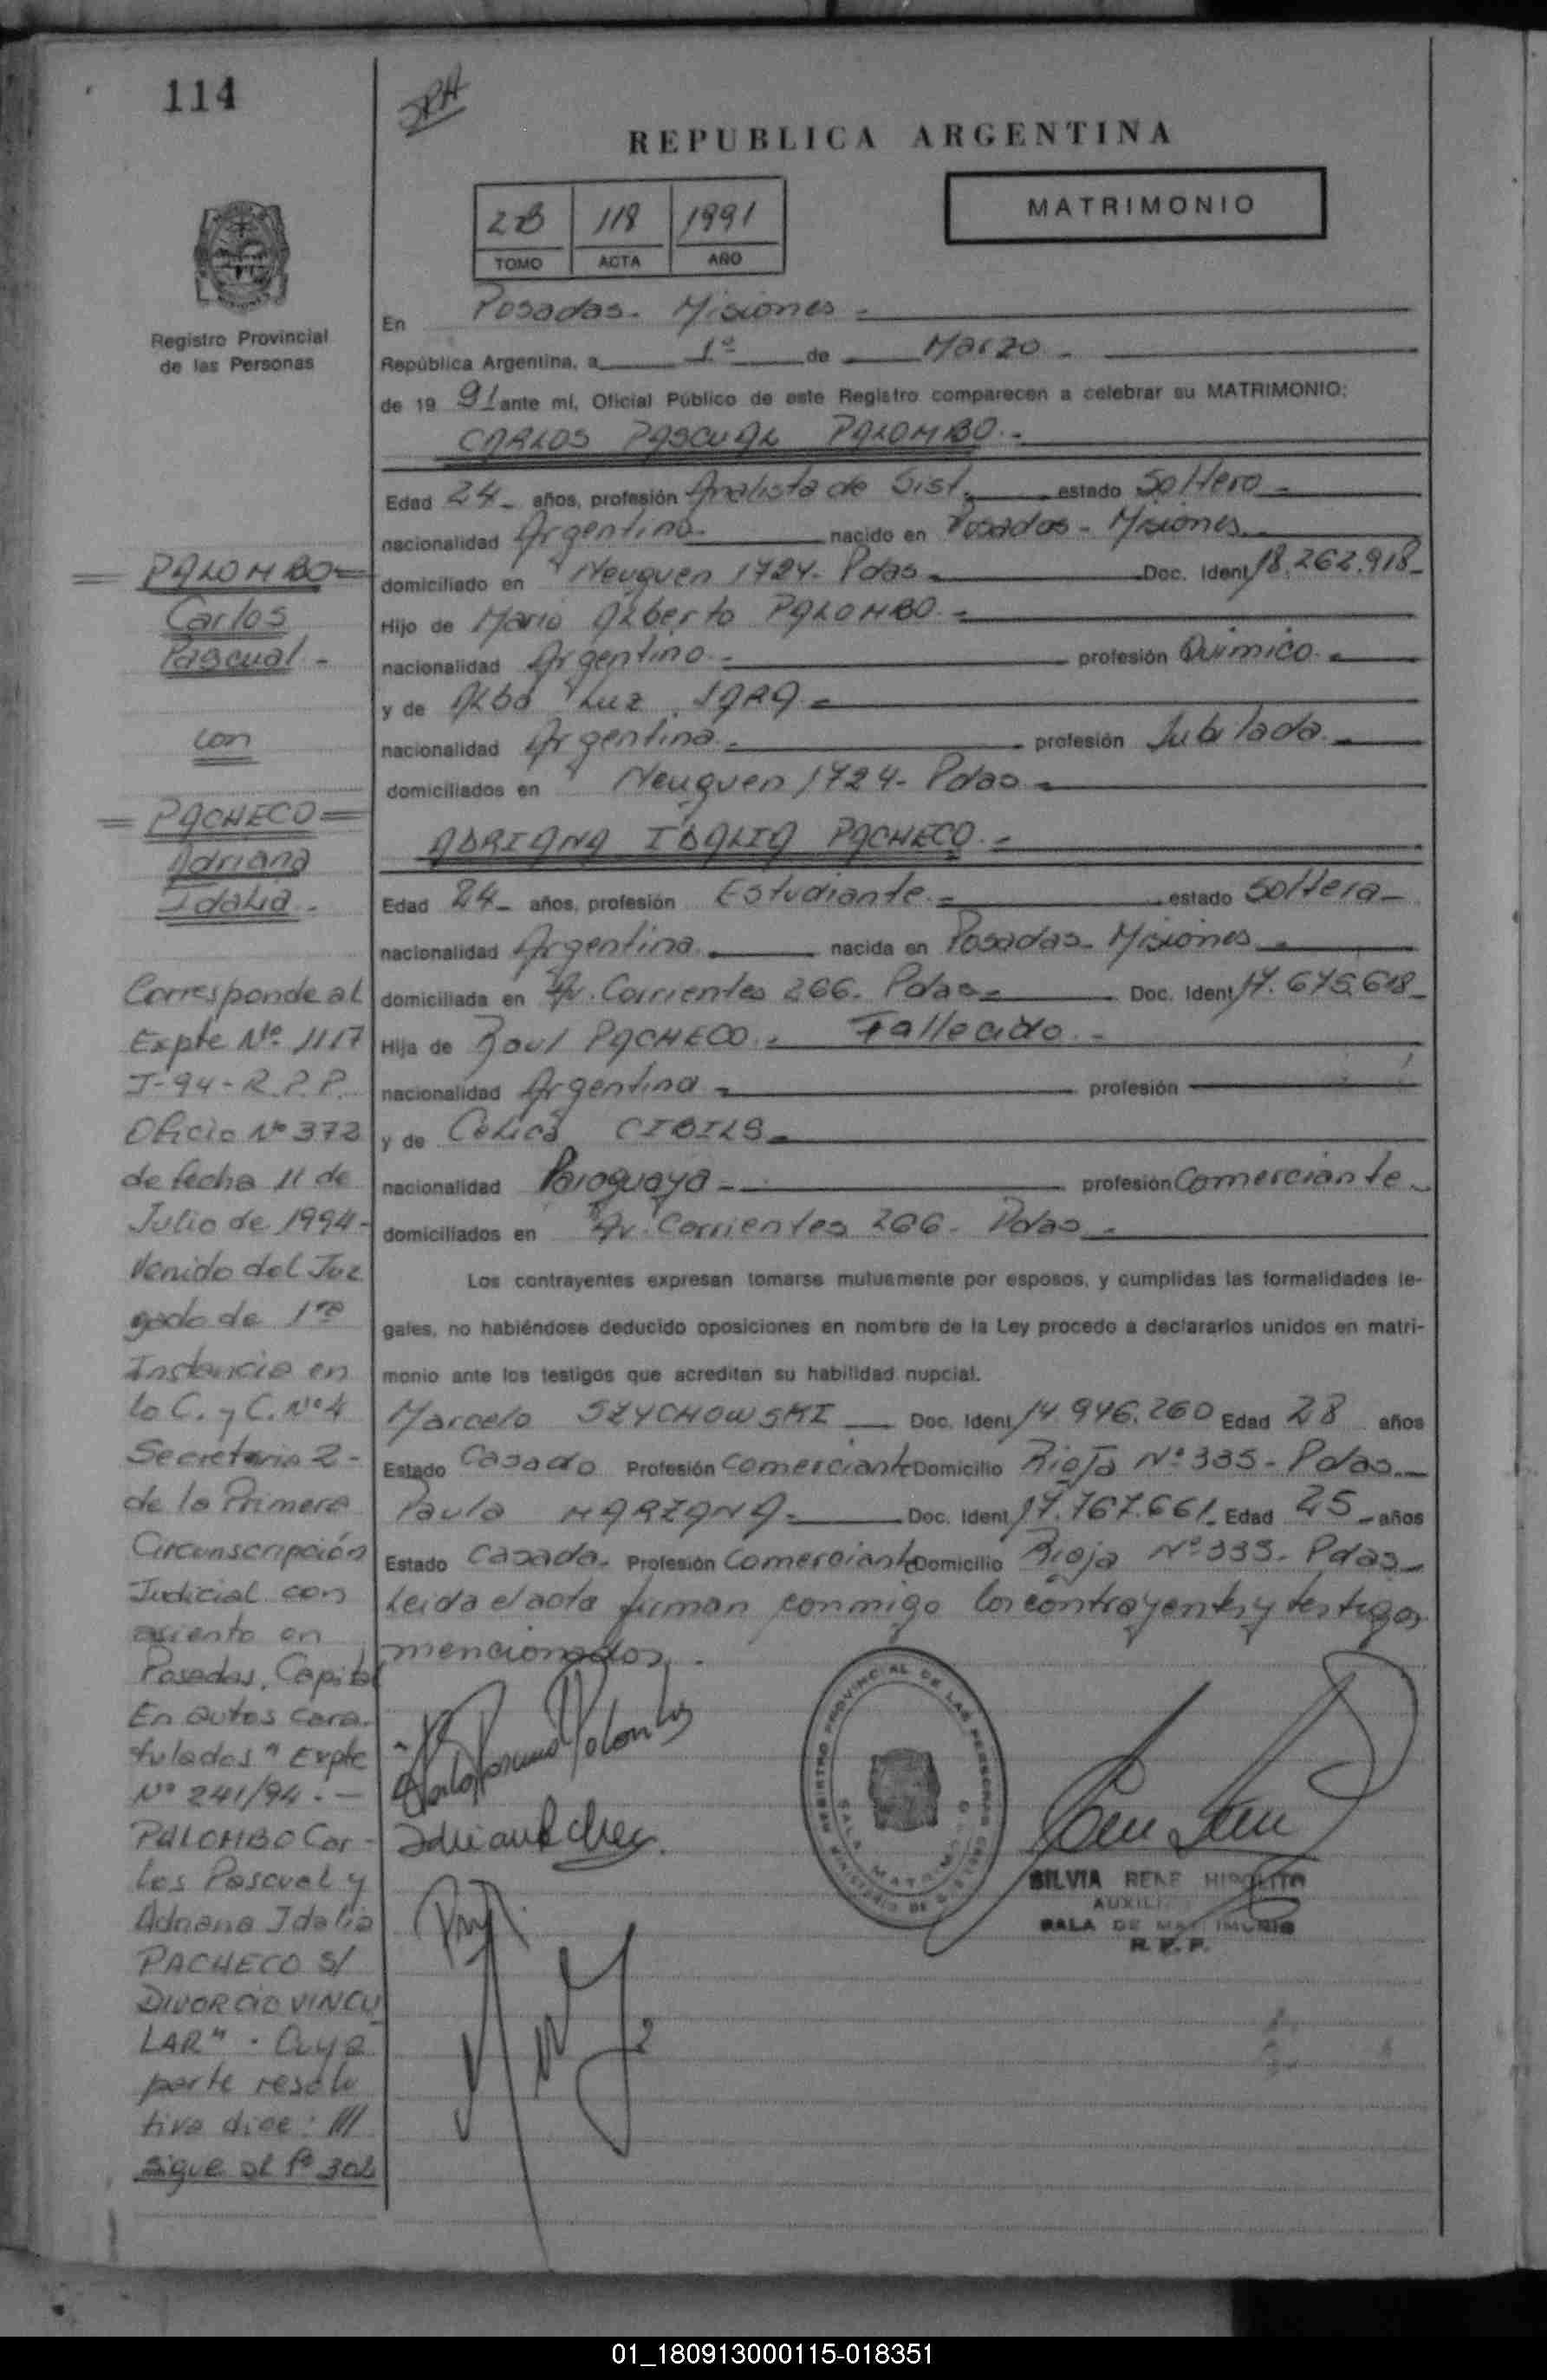 114
REPUBLICA ARGENTINA
2B 118 1991
TOMO ACTA AÑO
MATRIMONIO
Registro Provincial
de las Personas
En Posadas - Misiones
República Argentina, a 1º de Marzo
de 19 91 ante mí, Oficial Público de este Registro comparecen a celebrar su MATRIMONIO:
CARLOS PASCUAL PALOMBO.-
Edad 24 años, profesión Analista de Sist. estado Soltero
nacionalidad Argentina nacido en Posadas - Misiones
domiciliado en Neuquen 1724 - Pdas Doc. Ident 18.262.918
Hijo de Mario Alberto PALOMBO
nacionalidad Argentino profesión Quimico
y de Alba Luz JARA
nacionalidad Argentina profesión Jubilada
domiciliados en Neuquen 1724 - Pdas
ADRIANA IDALIA PACHECO.-
Edad 24 años, profesión Estudiante estado Soltera
nacionalidad Argentina nacida en Posadas - Misiones
domiciliada en Av. Corrientes 266 - Pdas Doc. Ident 17.675.618
Hija de Raul PACHECO Fallecido
nacionalidad Argentina profesión
y de Celica CIBILS
nacionalidad Paraguaya profesión Comerciante
domiciliados en Av. Corrientes 266 - Pdas
Los contrayentes expresan tomarse mutuamente por esposos, y cumplidas las formalidades le-
gales, no habiéndose deducido oposiciones en nombre de la Ley procedo a declararlos unidos en matri-
monio ante los testigos que acreditan su habilidad nupcial.
Marcelo SZYCHOWSKI Doc. Ident 14.946.260 Edad 28 años
Estado Casado Profesión Comerciante Domicilio Rioja Nº 335 - Pdas
Paula MARIANA Doc. Ident 17.767.661 Edad 25 años
Estado Casada Profesión Comerciante Domicilio Rioja Nº 335 - Pdas
Leida el acta firman conmigo los contrayentes y testigos
mencionados.
PALOMBO
Carlos
Pascual -
con
PACHECO
Adriana
Idalia -
Corresponde al
Expte Nº 1117
J-94-R.P.P.
Oficio Nº 372
de fecha 11 de
Julio de 1994-
Venido del Juz
gado de 1ra
Instancia en
lo C. y C. Nº 4
Secretaria 2 -
de la Primera
Circunscripción
Judicial con
asiento en
Posadas, Capital
En autos cara-
tulados "Expte
Nº 241/94.-
PALOMBO Car-
los Pascual y
Adriana Idalia
PACHECO S/
DIVORCIO VINCU
LAR" . Cuya
parte resolu
tiva dice: ///
Sigue al Fº 302
REGISTRO PROVINCIAL DE LAS PERSONAS
SALA MATRIMONIO
SILVIA RENE HIPOLITO
AUXILI
SALA DE MATRIMONIO
R. P. P.
01_180913000115-018351